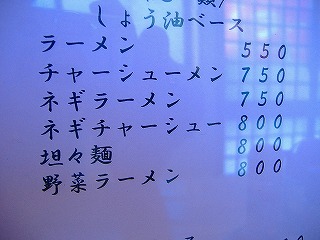 しょう油ベース
ラーメン 550
チャーシューメン 750
ネギラーメン 750
ネギチャーシュー 800
坦々麺 800
野菜ラーメン 800